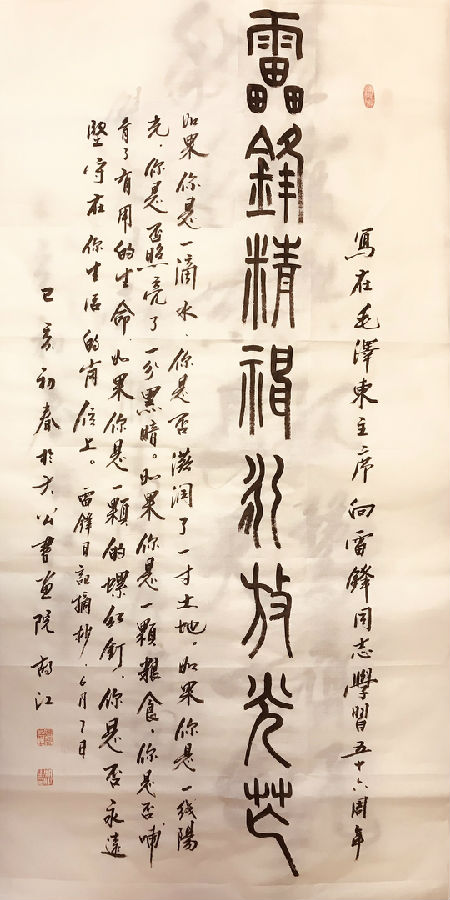 寫在毛澤東主席向雷鋒同志學習五十六周年
靁鋒精神永放光芒
如果你是一滴水,你是否滋潤了一寸土地。如果你是一线陽
光,你是否照亮了一分黑暗。如果你是一顆糧食,你是否哺
育了有用的生命,如果你是一顆的螺丝釘,你是否永遠
堅守在你生活的崗位上。雷鋒日記摘抄.
己亥初春於太公書画院